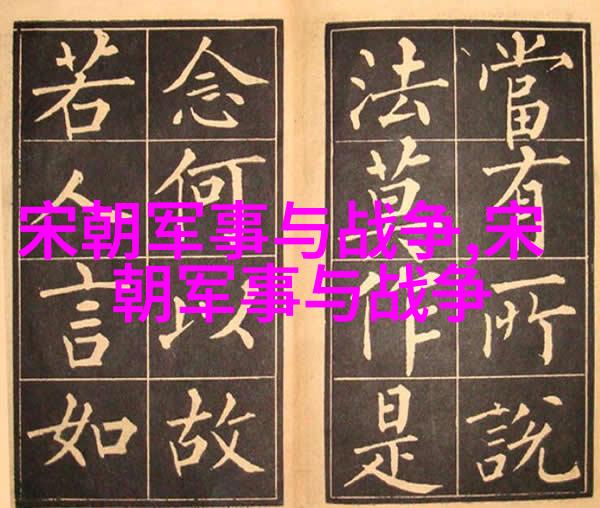 當有所說
法莫作是
念何以故
若人言如
宋朝军事与战争,宋
朝军事与战争